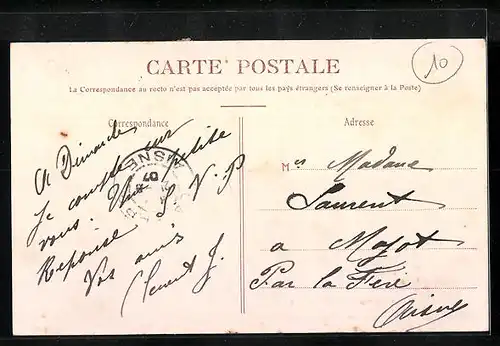 CARTE POSTALE
10
La Correspondance au recto n'est pas acceptée par tous les pays étrangers (Se renseigner à la Poste)
Correspondance
A Dimanche
Je compte sur
vous. Une petite
Reponse S. V. P
Vos amis
Clement J.
AISNE
07
Adresse
M Madame
Laurent
a Mayot
Par la Fère
Aisne